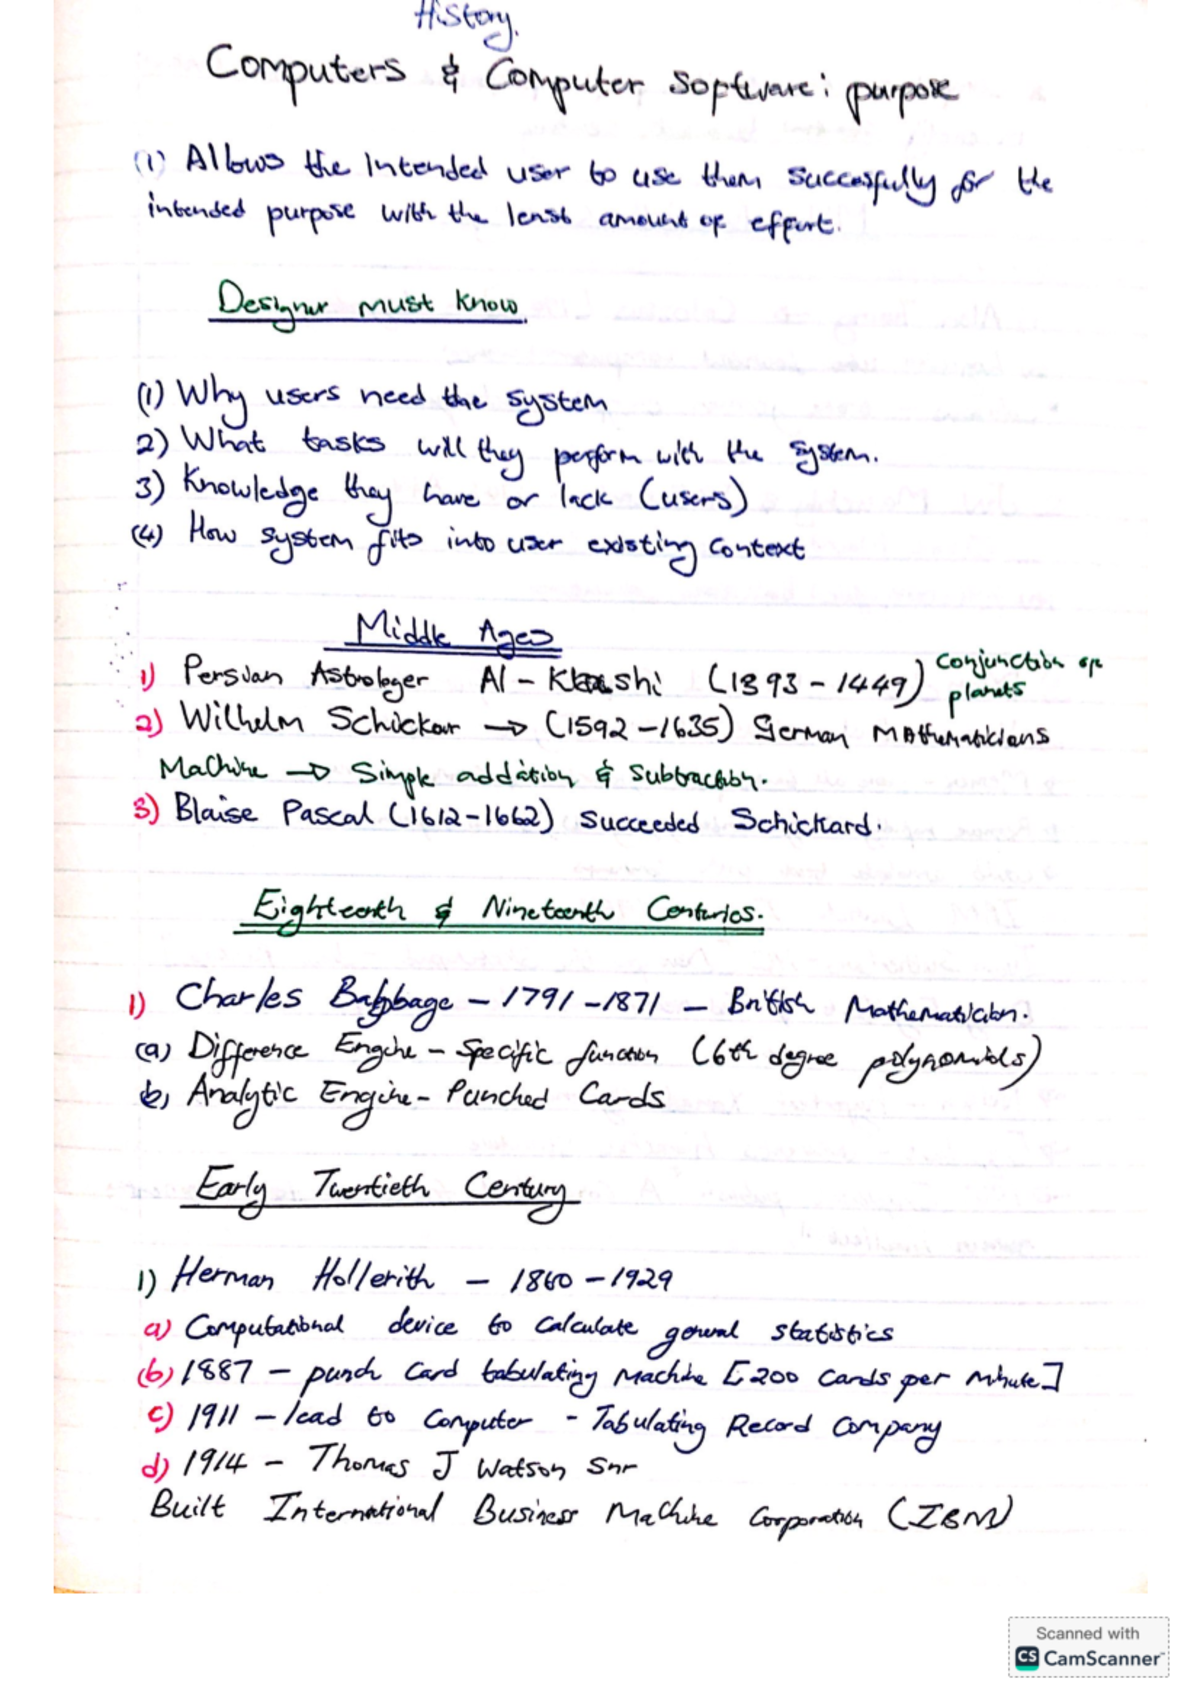 History.
Computers & Computer Software: purpose
(1) Allows the Intended user to use them successfully for the
intended purpose with the least amount of effort.
Designer must know.
(1) Why users need the system
2) What tasks will they perform with the system.
3) Knowledge they have or lack (users)
(4) How system fits into user existing context
Middle Ages
1) Persian Astrologer Al-Kashi (1393-1449) Conjunction of
planets
2) Wilhelm Schickar → (1592-1635) German Mathematicians
Machine → Simple addition & Subtraction.
3) Blaise Pascal (1612-1662) Succeeded Schickard.
Eighteenth & Nineteenth Centuries.
1) Charles Babbage - 1791-1871 - British Mathematician.
(a) Difference Engine - Specific function (6th degree polynomials)
b) Analytic Engine - Punched Cards
Early Twentieth Century
1) Herman Hollerith - 1860-1929
a) Computational device to calculate general statistics
(b) 1887 - punch card tabulating machine [200 cards per minute]
c) 1911 - lead to Computer - Tabulating Record Company
d) 1914 - Thomas J Watson Snr
Built International Business Machine Corporation (IBM)
Scanned with
CS CamScanner